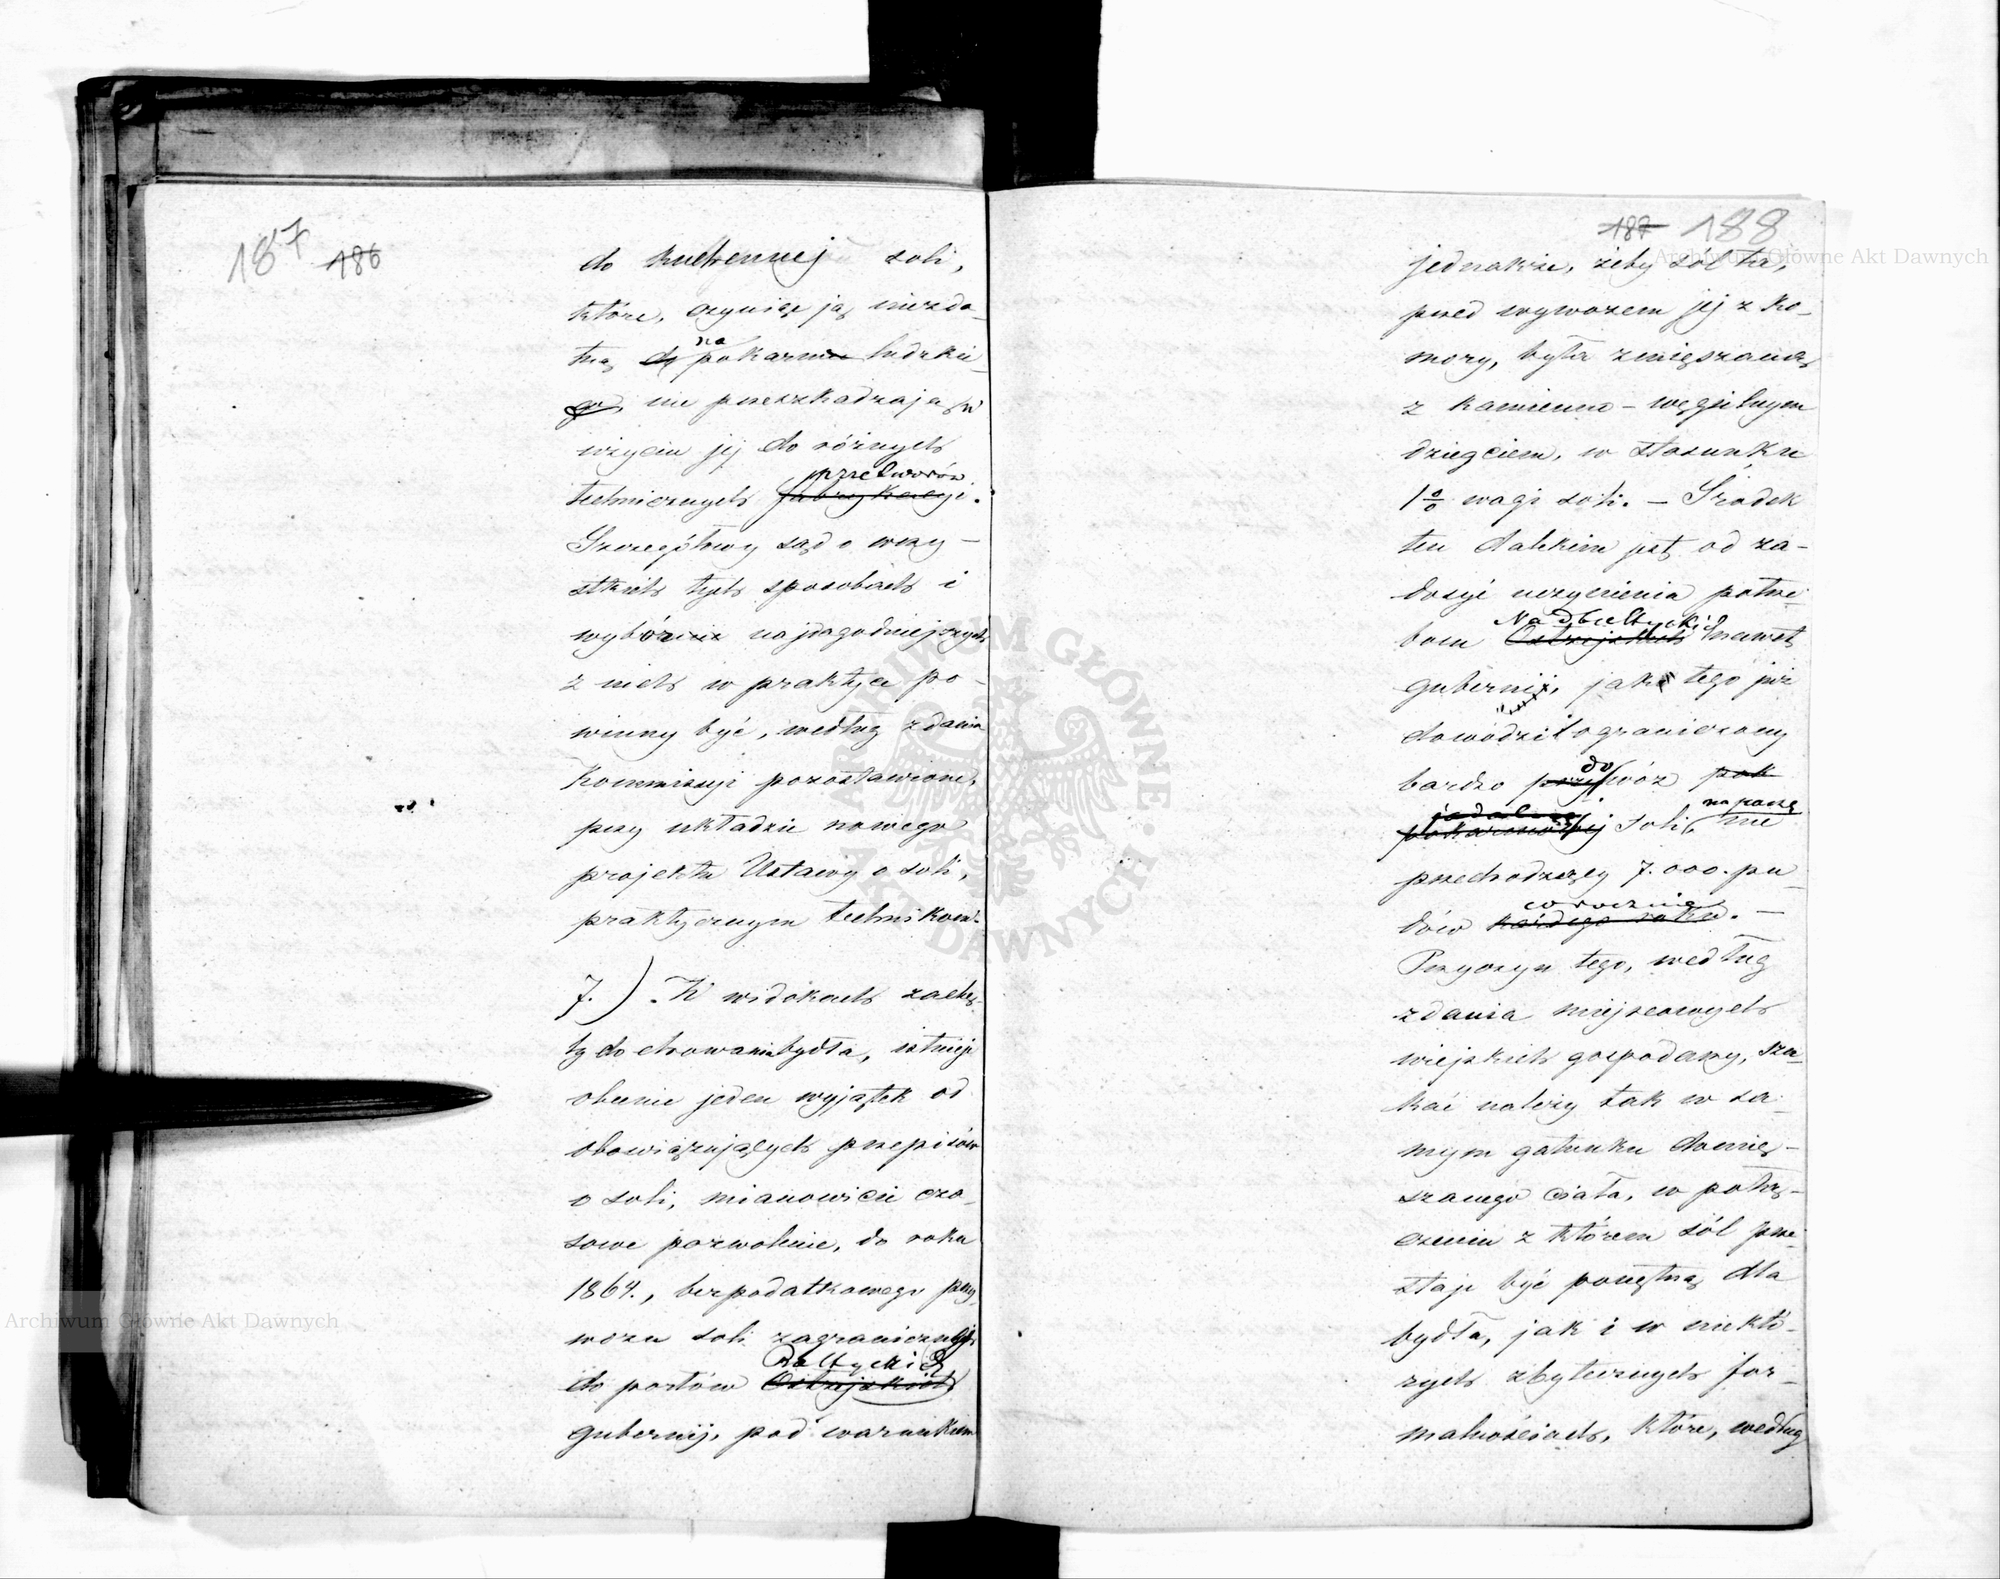 187 186
do kuchennej soli,
które, czyniąc ją niezda-
tną do na pokarmu ludzkie-
go, nie przeszkadzają w
użyciu jej do różnych
przetworów
technicznych fabrykacyi.
Szczegółowy sąd o wszy-
stkich tych sposobach i
wybór najdogodniejszych
z nich w praktyce po-
winny być, według zdania
Kommissyi pozostawione,
przy układzie nowego
projektu Ustawy o soli,
praktycznym technikom.
7.) W widokach zachę-
ty do chowania bydła, istnieje
obecnie jeden wyjątek od
obowiązujących przepisów
o soli, mianowicie cza-
sowe pozwolenie, do roku
1864., bezpodatkowego przy-
wozu soli zagranicznej
Baltyckich
do portów Ostzejskich
gubernij, pod warunkiem
187 188
jednakże, żeby sól ta,
przed wywozem jej z ko-
mory, była zmięszaną
z kamienno-węglnym
dziegciem, w stosunku
1% wagi soli. – Środek
ten dalekim jest od za-
dosyć uczynienia potrze-
Nadbaltyckich
bom Ostzejskich nawet
gubernij, jak tego już
dowodzi ograniczony
bardzo przy do wóz pok
jadalnej na paszę
pokarmowej soli, nie
przechodzący 7.000. pu-
corocznie
dów każdego roku. –
Przyczyn tego, według
zdania miejscowych
wiejskich gospodarzy, szu-
kać należy tak w sa-
mym gatunku domię-
szanego ciała, w połą-
czeniu z którem sól prze-
staje być ponętną dla
bydła, jak i w niektó-
rych zbytecznych for-
malnościach, które, według
Archiwum Główne Akt Dawnych
Archiwum Główne Akt Dawnych
ARCHIWUM GŁÓWNE AKT DAWNYCH